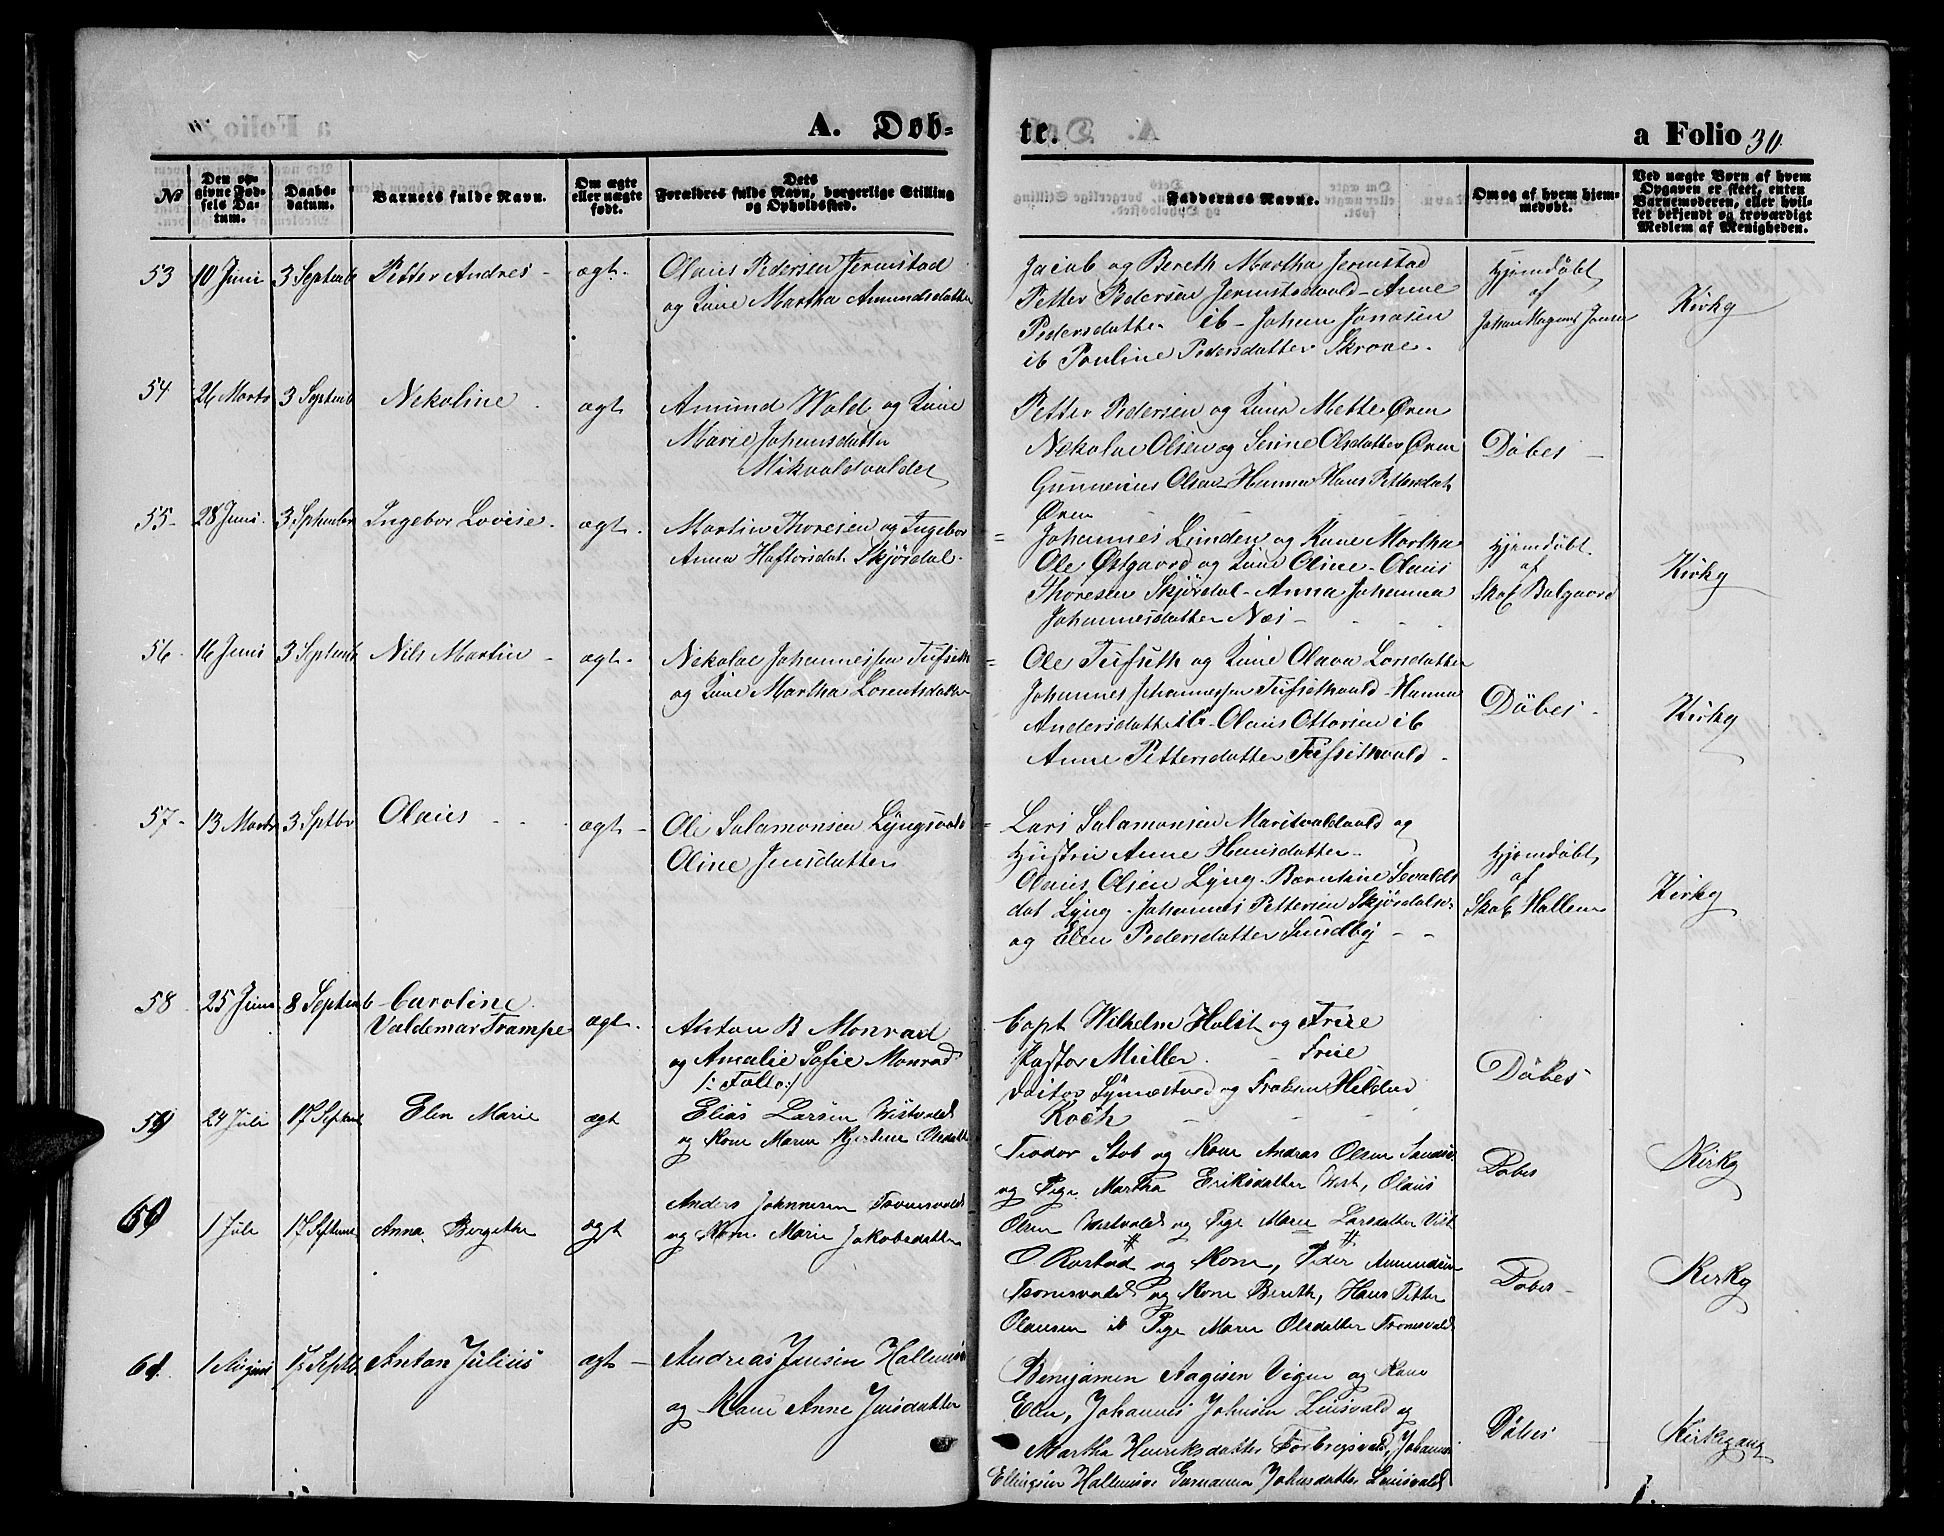 A. Døb-
te.
a Folio 30
No
Den opgivne Fødsels Datum.
Daabsdatum.
Barnets fulde Navn.
Om ægte eller uægte født.
Dets Forældres fulde Navn, borgerlige Stilling og Opholdssted.
Faddernes Navne.
Om og af hvem hjemmedøbt.
Ved uægte Børn af hvem Opgaven er skeet, enten Barnemoderen, eller hvilket bekjendt og troværdigt Medlem af Menigheden.
53 10 Juni 3 Septemb Petter Andres - ægt.
Olaus Pedersen Jermstad
og Kune Martha Amundsdatter
Jacob og Bereth Martha Jermstad
Petter Pedersen Jermstadvald - Anne
Pedersdatter ib - Johan Jonasen
ib Pauline Pedersdatter Skrove.
Hjemdøbt
af
Johan Magnus Jonsen
Kirkg
54 26 Marts 3 Septemb Nekoline ægt
Amund Wald og Kune
Marie Johansdatter
Petter Pedersen og Kune Mette Øren
Nekolai Olsen og Serine Olsdatter Øren
Gunnerius Olsen Hanna Hans Pettersdat
Øren
Døbes -
55- 28 Juni 3 September Ingebor Lovise. ægt.
Martin Thoresen og Ingebor
Anna Haftorsdat. Skjørdal.
Johannes Lunden og Kune Martha
Ole Østgaard og Kune Oline - Olaus
Thoresen Skjørdal - Anna Johanna
Johannesdatter Næs -
Hjemdøbt.
af
Skol. Balgaard
Kirkg
56- 16 Juni 3 Septemb Nils Martin - ægt.
Nekolai Johannessen Tufseth
og Kune Martha Lorentsdatter
Ole Tufseth og Kune Olava Larsdatter
Johannes Johannessen Tufsethvald - Hanna
Andersdatter ib - Olaus Ottersen ib
Anne Pettersdatter Tufsethvald -
Døbes -
Kirkg
57- 13 Marts 3 Septbr Olaus ægt -
Ole Salamonsen Lyngsvald
Oline Jensdatter
Lars Salamonsen Maritvaldvald og
Hustru Anne Hansdatter -
Olaus Olsen Lyng - Berntine Sevaldsdat
Lyng - Johannes Pettersen Skjørdals
og Elen Pedersdatter Sundby - -
Hjemdøbt
af
Skol. Hallem
Kirkg
58 25 Juni 8 Septemb Caroline
Valdemar Trampe ægt.
Anton B Monrad
og Amalie Sofie Monrad
/: Falle :/
Capt Wilhelm Holst og Frue
Pastor Müller. - Frue
og Frøken
Koch
Døbes
59 24 Juli 17 Septem Elen Marie ægt
Elias Larsen Westvald
og Kone Maren Kjerstine Olsdatt
Teodor Stob og Kone Andras Olsen
og Pige Martha Eriksdatter West, Olaus
Olsen Westvald og Pige Maren Larsdatter Vist
Døbes
Kirkg
60 1 Juli 17 Septem Anna Bergithe ægt
Anders Johnnesen
og Kone Marie Jakobsdatter
O Rostad og Kone, Peder Amundsen
og Kone Bereth, Hans Petter
Olausen ib Pige Maren Olsdatter
Døbes -
Kirkg
61. 1 August 17 Septbr. Anton Julius ægt -
Andreas Jensen Hallems
og Kone Anne Jensdatter
Benjamin Aagesen Vigen og Kone
Elen, Johannes Johnsen Leinsvald og
Martha Henriksdatter Forbregsvald, Johannes
Ellingsen Hallems Johnsdatter Leinsvald
Døbes
Kirkegang